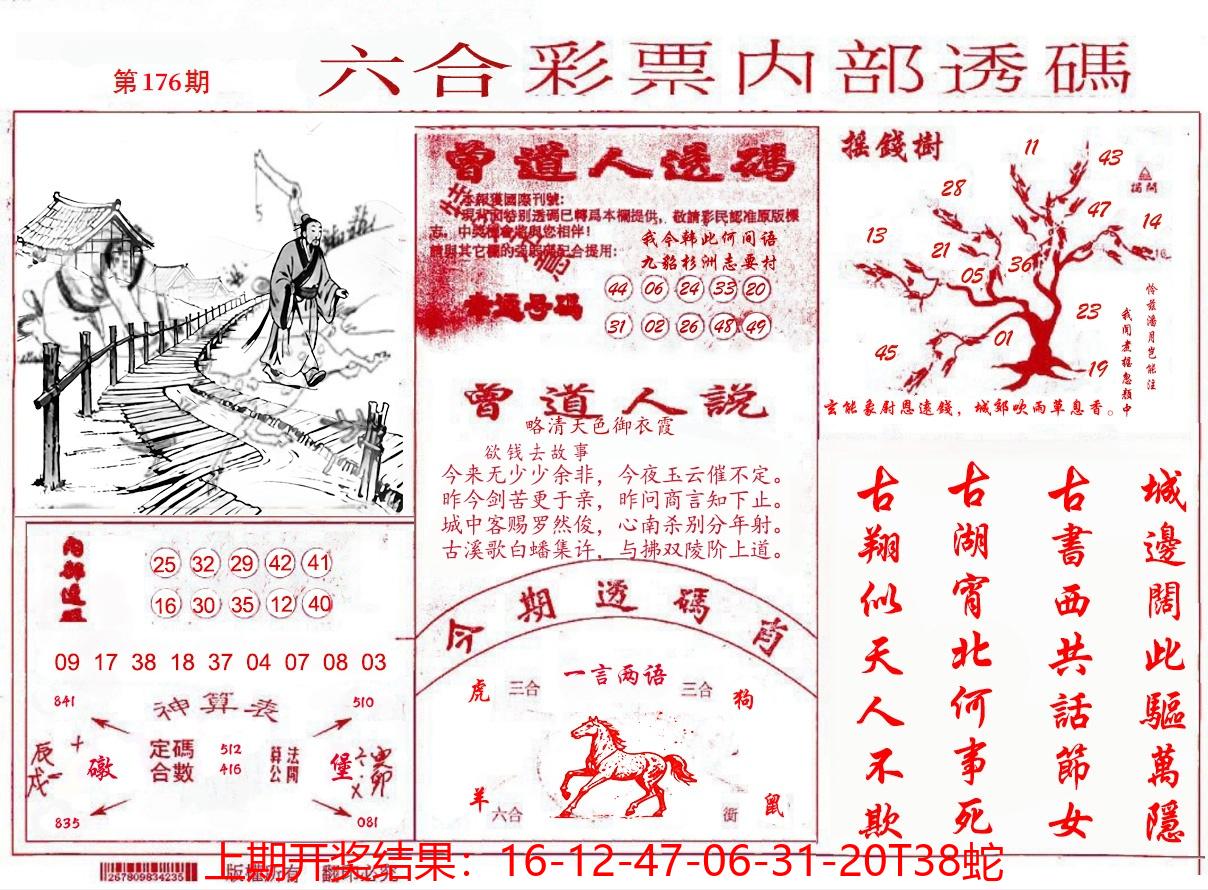 第176期
六合彩票内部透碼
曾道人透碼
本報獲國際刊號:
現背面特别透碼已轉爲本欄提供，敬請彩民認准原版標
志。中獎機會將與您相伴!
我令韩此何间语
九貂杉洲志要村
幸運号码
44 06 24 33 20
31 02 26 48 49
曾道人説
略清天色御衣霞
欲钱去故事
今来无少少余非，今夜玉云催不定。
昨今剑苦更于亲，昨问商言知下止。
城中客赐罗然俊，心南杀别分年射。
古溪歌白蟠集许，与拂双陵阶上道。
摇錢樹
11
43
28
47
14
13
21
05
36
16
23
01
45
19
怜兹潘月岂能注
玄能象尉恩遠錢，城郊吹雨草息香。
城邊闊此驅萬隱
古書西共話節女
古湖宵北何事死
古翔似天人不欺
25 32 29 42 41
16 30 35 12 40
09 17 38 18 37 04 07 08 03
841
510
辰
戌
礅
定碼
合數
512
416
法門
算公
堡
卯
835
081
今期透碼肖
一言两语
虎 三合
三合 狗
羊 六合
衝 鼠
267809834235
版權所有 翻印必究
上期开奖结果：16-12-47-06-31-20T38蛇